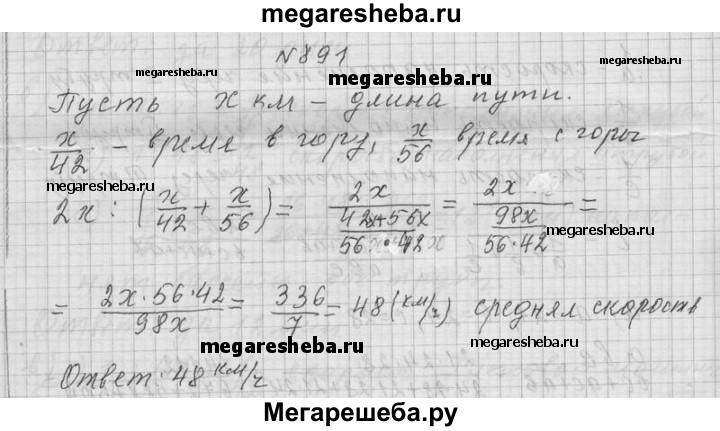 megaresheba.ru
N 891
megaresheba.ru megaresheba.ru megaresheba.ru
Пусть x км – длина пути.
x/42 – время в гору, x/56 время с горы
megaresheba.ru megaresheba.ru
2x : (x/42 + x/56) = 2x/((42x+56x)/(56·42)) = 2x/(98x/(56·42)) =
megaresheba.ru
= 2x·56·42/98x = 336/7 = 48 (км/ч) средняя скорость
megaresheba.ru megaresheba.ru
Ответ: 48 км/ч
megaresheba.ru
Мегарешеба.ру